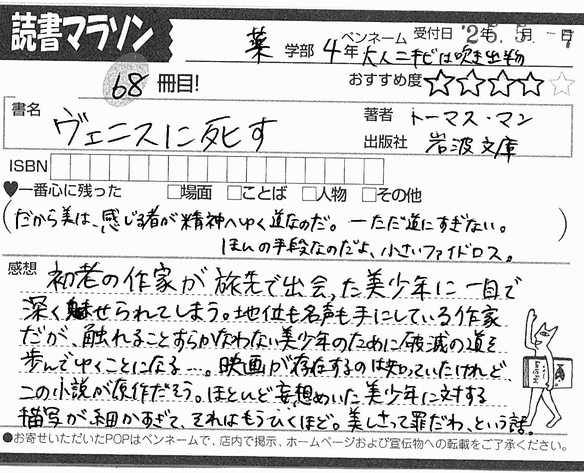 読書マラソン
薬 学部 4年 ペンネーム 大人ニキビは吹き出物 受付日 '25. 5月 -7日
68 冊目! おすすめ度 ★★★★☆
書名 ヴェニスに死す
著者 トーマス・マン
出版社 岩波文庫
ISBN
♥一番心に残った □場面 □ことば □人物 □その他
(だから美は、感じる者が精神へゆく道なのだ。―ただ道にすぎない。
ほんの手段なのだよ、小さいファイドロス。)
感想 初老の作家が旅先で出会った美少年に一目で
深く魅せられてしまう。地位も名声も手にしている作家
だが、触れることすらかなわない美少年のために破滅の道を
歩んでゆくことになる…。映画が存在するのは知っていたけれど、
この小説が原作だそう。ほとんど妄想めいた美少年に対する
描写が細かすぎて、それはもうひくほど。美しさって罪だわ、という話。
●お寄せいただいたPOPはペンネームで、店内で掲示、ホームページおよび宣伝物への転載をご了承ください。